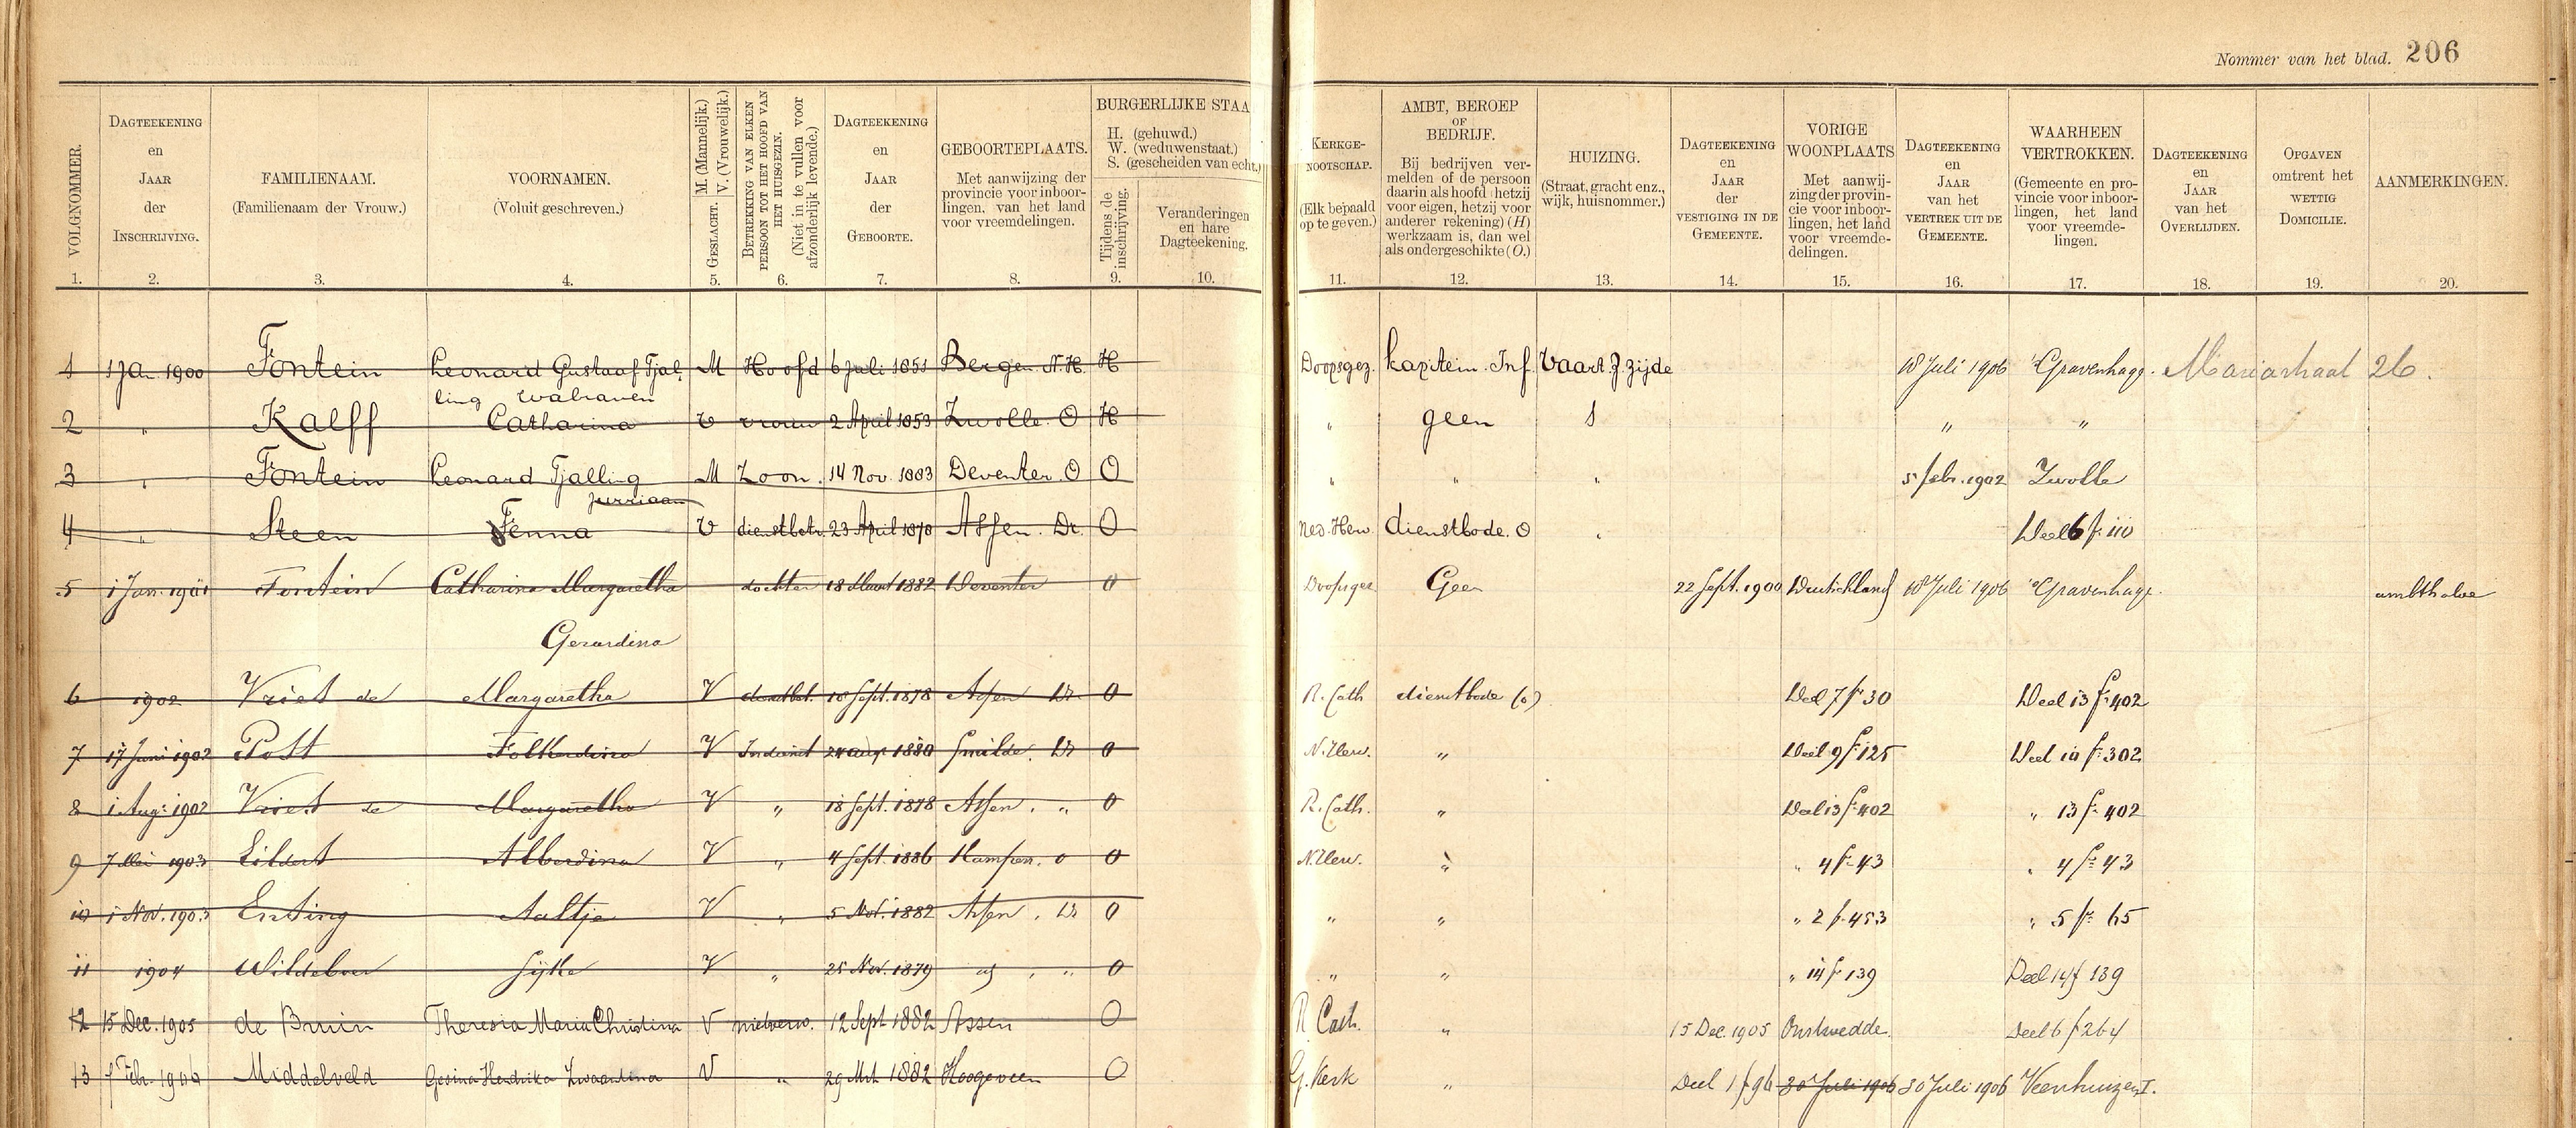 Nommer van het blad. 206
VOLGNOMMER. 1.
DAGTEEKENING en JAAR der INSCHRIJVING. 2.
FAMILIENAAM. (Familienaam der Vrouw.) 3.
VOORNAMEN. (Voluit geschreven.) 4.
GESLACHT. M. (Mannelijk.) V. (Vrouwelijk.) 5.
BETREKKING VAN ELKEN PERSOON TOT HET HOOFD VAN HET HUISGEZIN. (Niet in te vullen voor afzonderlijk levende.) 6.
DAGTEEKENING en JAAR der GEBOORTE. 7.
GEBOORTEPLAATS. Met aanwijzing der provincie voor inboorlingen, van het land voor vreemdelingen. 8.
BURGERLIJKE STAA
H. (gehuwd.)
W. (weduwenstaat.)
S. (gescheiden van echt.)
Tijdens de inschrijving. 9.
Veranderingen en hare Dagteekening. 10.
KERKGENOOTSCHAP. (Elk bepaald op te geven.) 11.
AMBT, BEROEP OF BEDRIJF. Bij bedrijven vermelden of de persoon daarin als hoofd (hetzij voor eigen, hetzij voor anderer rekening) (H) werkzaam is, dan wel als ondergeschikte (O.) 12.
HUIZING. (Straat, gracht enz., wijk, huisnommer.) 13.
DAGTEEKENING en JAAR der VESTIGING IN DE GEMEENTE. 14.
VORIGE WOONPLAATS Met aanwijzing der provincie voor inboorlingen, het land voor vreemdedelingen. 15.
DAGTEEKENING en JAAR van het VERTREK UIT DE GEMEENTE. 16.
WAARHEEN VERTROKKEN. (Gemeente en provincie voor inboorlingen, het land voor vreemdelingen. 17.
DAGTEEKENING en JAAR van het OVERLIJDEN. 18.
OPGAVEN omtrent het WETTIG DOMICILIE. 19.
AANMERKINGEN. 20.
1 1 Jan. 1900 Fontein Leonard Gustaaf Tjal M Hoofd 6 Juli 1851 Bergen N.H. H Doopsgez. kapitein Inf. Vaart Z. zijde 18 Juli 1906 'sGravenhage. 26.
ling Walraven
2 " Kalff Catharina V vrouw 2 April 1853 Zwolle O H " geen " "
3 " Fontein Leonard Tjalling M Zoon. 14 Nov. 1883 Deventer. O O " " " 5 febr. 1902 Zwolle
Jurriaan
4 " Steen Fenna V dienstbetr. 23 April 1878 Assen. Dr. O Ned. Herv. dienstbode. O " Deel 6 f. 110
5 1 Jan. 1901 Fontein Catharina Margaretha dochter 18 Maart 1882 Deventer O Doopsgez. Geen 22 Sept. 1900 Duitschland 18 Juli 1906 'sGravenhage. ambtshalve
Gerardina
6 1902 Vriet de Margaretha V dienstbet. 18 Sept. 1878 Assen Dr. O R. Cath dienstbode (o) Deel 7 f. 30 Deel 13 f. 402
7 17 Juni 1902 Post Folkerdina V 24 aug. 1880 Smilde. Dr O N. Herv. " Deel 9 f. 125 Deel 10 f. 302
8 1 Aug. 1902 Vriet de Margaretha V " 18 Sept. 1878 Assen. " O R. Cath. " Deel 13 f. 402 " 13 f. 402
9 7 Mei 1903 Eildert Alberdina V " 4 Sept. 1886 Kampen. O O N. Herv. " " 4 f. 43 " 4 f. 43
10 1 Nov. 1903 Enting Aaltje V " 5 Nov. 1882 Assen. Dr O " " " 2 f. 453 " 5 f. 65
11 1904 Wildeboer V " 25 Nov. 1879 " O " " " 14 f. 139 Deel 14 f 139
12 15 Dec. 1905 de Bruin Theresia Maria Christina V 12 Sept 1882 Assen O R. Cath. " 15 Dec. 1905 Onstwedde. Deel 6 f 264
13 Middelveld Gesina Hendrika Zwaantina V " 29 Mrt 1882 Hoogeveen O G. Kerk " Deel 1 f 96 30 Juli 1906 30 Juli 1906 Veenhuizen I.